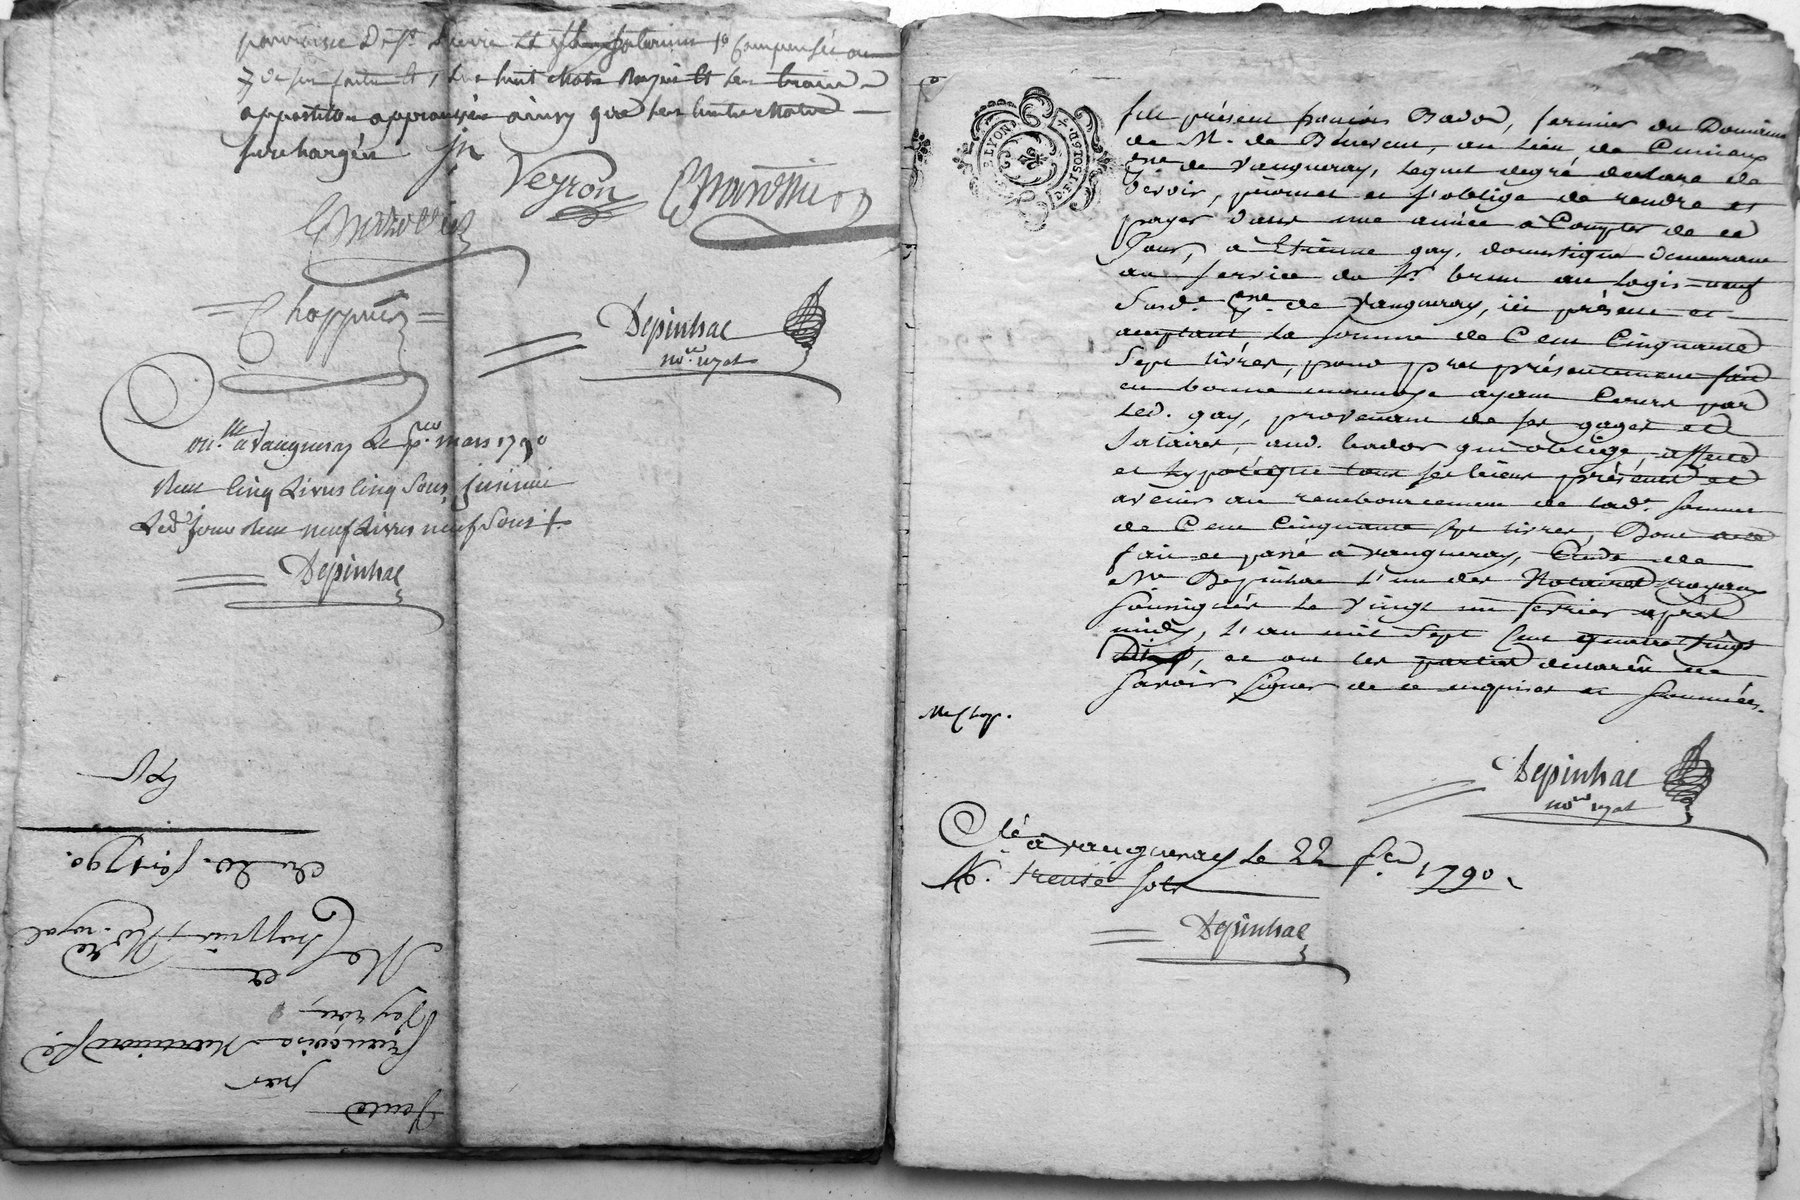 paroisse
appostille approuvés ainsy que les huit mots
surchargés
Veyron
Choppin
Depinhac
no.re royal
Con.lle à Vaugneray le p.er mars 1790
Reçu cinq Livres cinq Sous,
Led. jour Reçu neuf Livres neuf Sous
Depinhac
Vente
par
françoise
Veyron
a
Me Choppin No.re royal
Du 20. fev. 1790.
LYON
fut présent françois Bador, fermier du Domaine
de M. de, au Lieu de
de Vaugneray, Lequel degré declare de
devoir, promet et s'oblige de rendre et
payer dans une année à Compter de ce
Jour, à Etienne gay, domestique demeurant
au service du Sr brun au logis-neuf
Susd. de Vaugneray, ici présent et
acceptant La somme de Cent Cinquante
Sept livres, pour pret présentement fait
en bonne monnoye ayant Cours par
Led. gay, provenant de ses gages et
Salaires, aud. bador qui oblige, affecte
et hypotèque tous ses biens présents et
avenir au remboursement de lad. somme
de Cent Cinquante sept livres, Dont acte
fait et passé à Vaugneray, Etude de
Me Depinhac L'un des Notaires royaux
soussignés Le vingt un fevrier après
midy, L'an mil Sept Cent quatre vingt
Dix, et ont les parties declaré ne
savoir signer de ce enquises et sommées.
Depinhac
no.re royal
C.lé à Vaugneray Le 22 fev. 1790.
R. treize sols
Depinhac